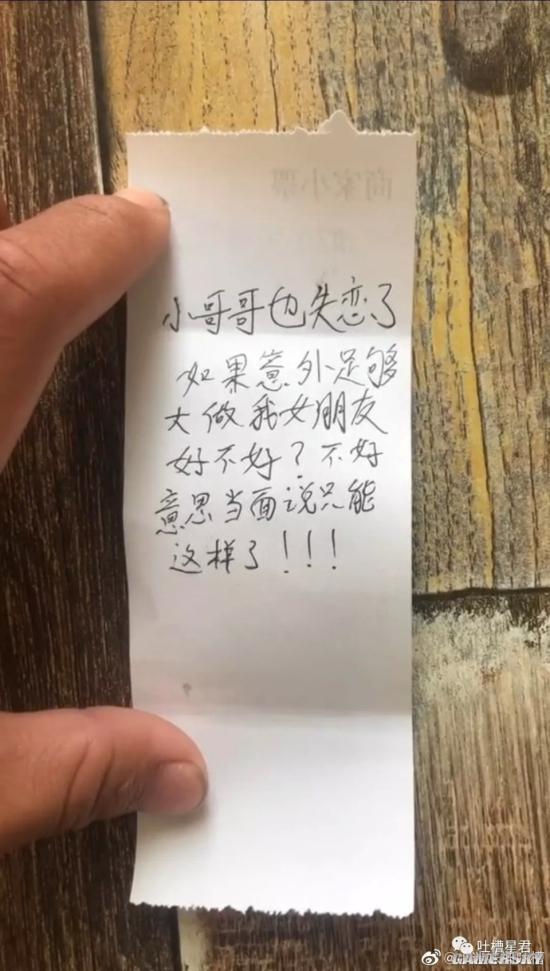 商家小票
小哥哥也失恋了
如果意外足够
大做我女朋友
好不好？不好
意思当面说只能
这样了！！！
吐槽星君
GAMERSKY